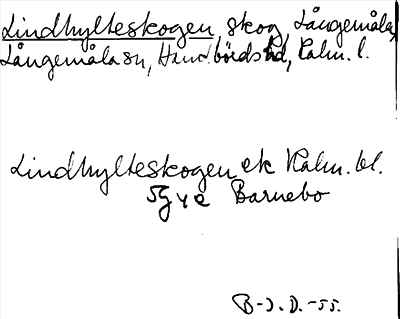 Lindhylteskogen, skog, Långemåla,
Långemåla sn, Handbörds hd, Kalm. l.
Lindhylteskogen ek Kalm. bl.
5g y e Barnebo
B-J. D. -55.